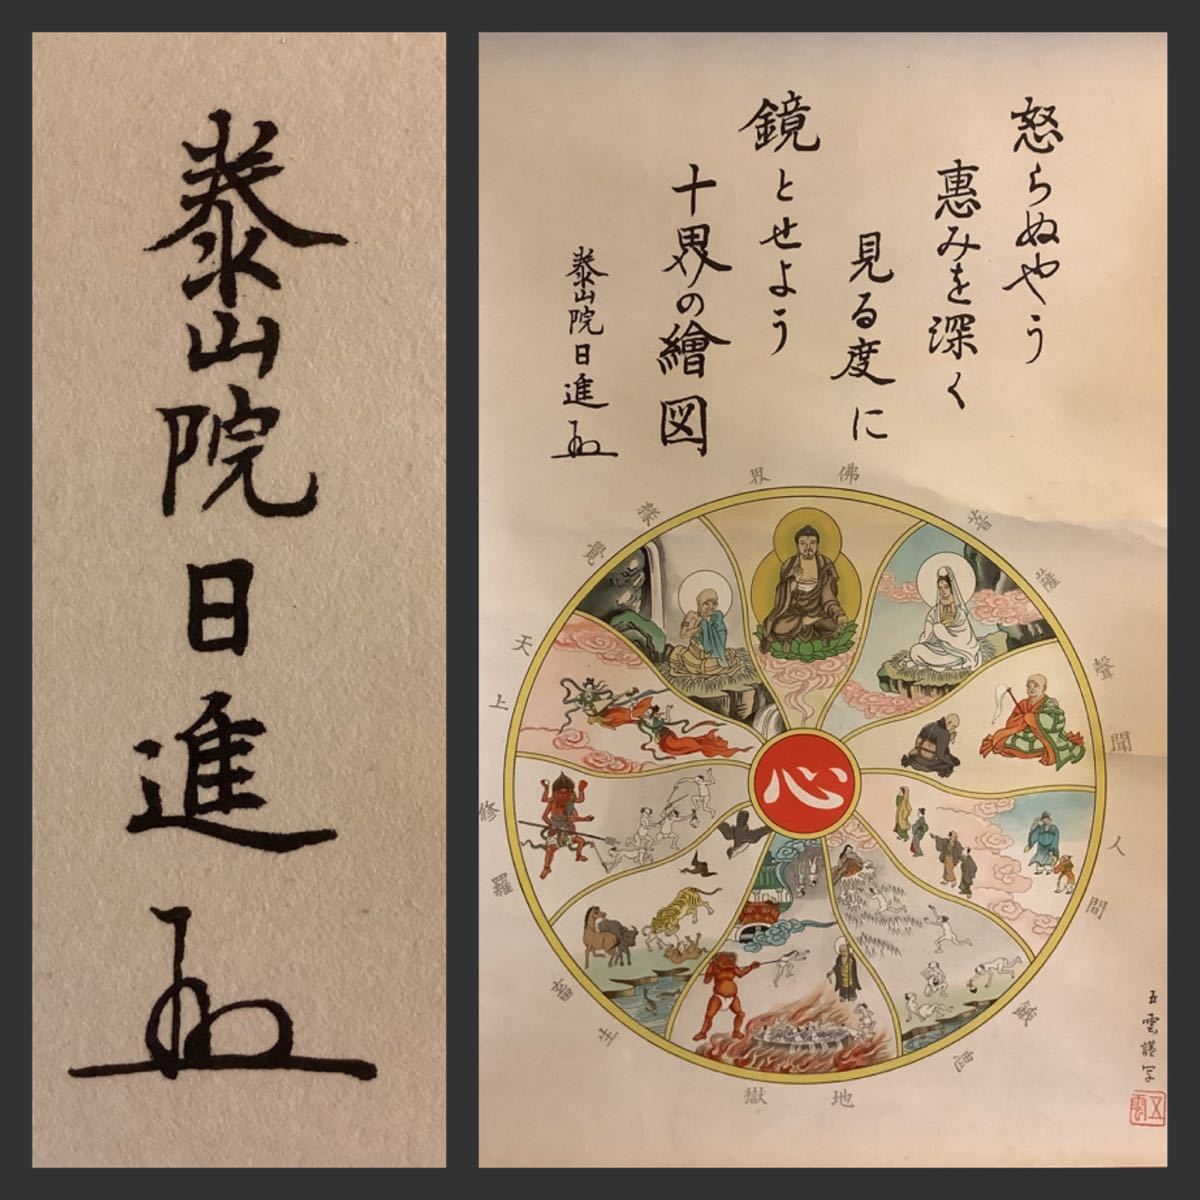 泰山院日進
怒らぬやう
惠みを深く
見る度に
鏡とせよう
十界の繪図
泰山院日進
佛界
菩薩
聲聞
人間
餓鬼
地獄
畜生
修羅
天上
縁覺
心
五雲謹写
五雲